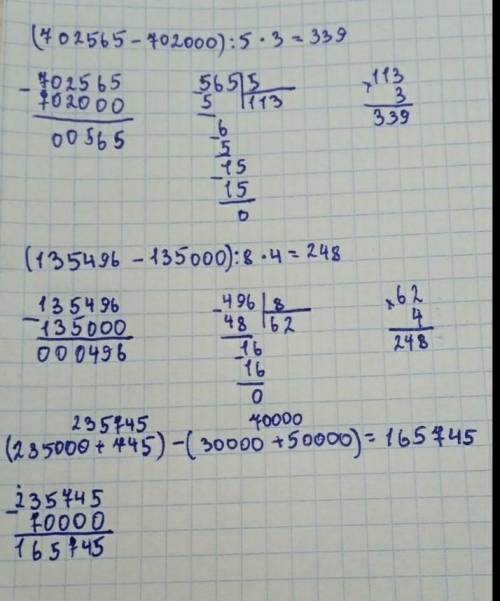 (702565 - 702000) : 5 · 3 = 339
- 702565
702000
00565
- 565 | 5
5 | 113
- 6
5
- 15
15
0
× 113
3
339
(135496 - 135000) : 8 · 4 = 248
- 135496
135000
000496
- 496 | 8
48 | 62
- 16
16
0
× 62
4
248
235745 70000
(235000 + 745) - (30000 + 50000) = 165745
- 235745
70000
165745